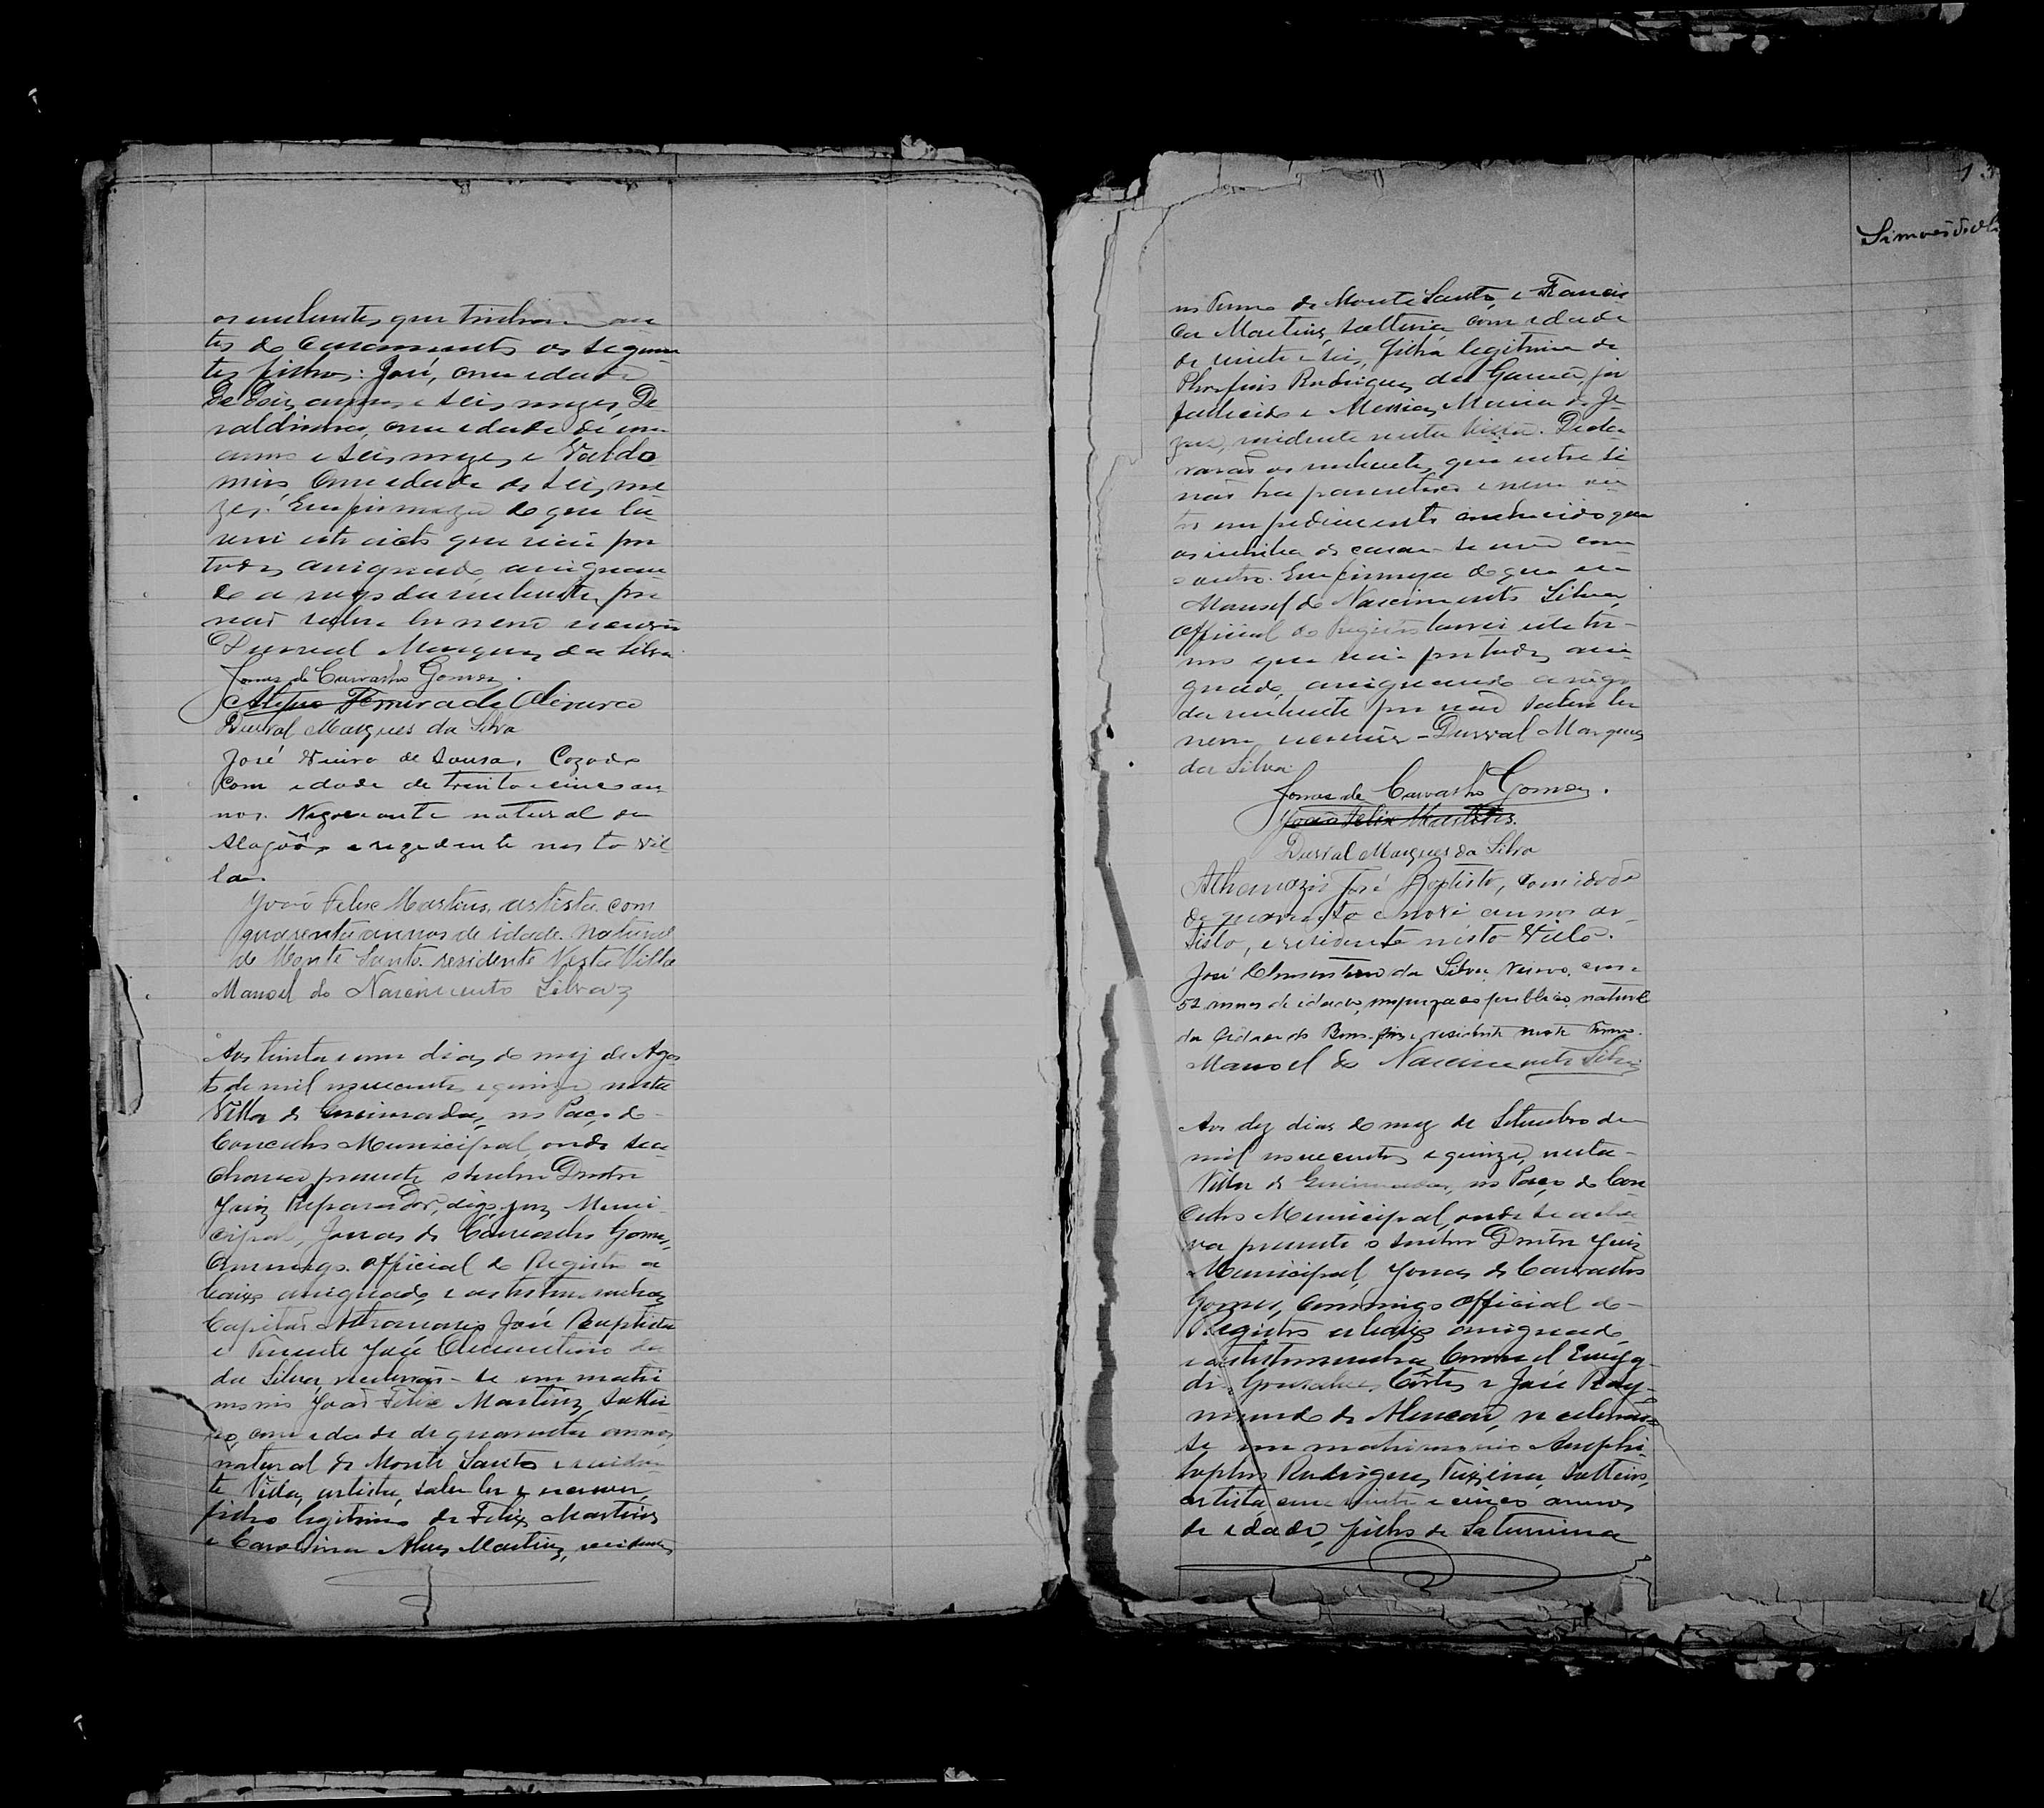 os nubentes, que tinham an-
tes do casamento os seguin-
tes filhos: José, com edade
de dois annos e seis mezes, De-
raldina, com edade de um
anno e seis mezes e Valdo-
miro, com edade de seis me-
zes. Em firmeza do que la-
vrei este acto que vai por
todos assignado, assignan-
do a rogo da nubente por
não saber ler nem escrever
Durval Marques da Silva
Jonas de Carvalho Gomes.
Ferreira de Oliveira
Durval Marques da Silva
José Vieira de Sousa, Cazado
com edade de trinta e cinco an-
nos. Negociante natural de
Alagôas e rezedente nesta Vil-
la.
João Felix Martins, artista com
quarenta annos de idade natural
de Monte Santo. residente Nesta Villa
Manoel do Nascimento Silva
Aos trinta e um dias do mez de Agos-
to de mil novecentos e quinze nesta
Villa de Queimadas, no Paço do
Concelho Municipal, onde se a-
chava presente o senhor Doutor
Juiz Preparador, digo, juiz Muni-
cipal, Jonas de Carvalho Gomes,
commigo official do Registro a-
baixo assignado, e as testemunhas
Capitão Athanazio José Baptista
e Tenente José Clementino da
da Silva, receberão-se em matri-
monio João Felix Martins, soltei-
ro, com edade de quarenta annos,
natural de Monte Santo e residen-
te Villa, artista, saber ler e escrever,
filho legitimo de Felix Martins
e Carolina Alves Martins, residentes
Simões
no Termo de Monte Santo, e Francis-
ca Martins, solteira, com edade
de vinte e seis, filha legitima de
Rodrigues da Gama, já
fallecido e Messias Maria de Je-
zus, residente nesta Villa. Decla-
rarão os nubentes, que entre si
não ha parentesco e nem ou-
tro impedimento conhecido que
os iniba de casar-se um com
o outro. Em firmeza do que eu
Manoel do Nascimento Silva,
official do Registro lavrei este ter-
mo que vai por todos assi-
gnado, assignando a rogo
da nubente por não saber ler
nem escrever - Durval Marques
da Silva
Jonas de Carvalho Gomes.
João Felix Martins.
Durval Marques da Silva
Athanazio José Baptista, com idade
de quarenta e nove annos ar-
tista, e residente nesta Villa.
José Clementino da Silva, viuvo, com
52 annos de idade, empregado publico, natural
da Cidade do Bom-fim e residente neste Termo.
Manoel do Nascimento Silva
Aos dez dias do mez de Setembro de
mil novecentos e quinze, nesta
Villa de Queimadas, no Paço do Con-
celho Municipal, onde se acha-
va presente o senhor Doutor Juiz
Municipal, Jonas de Carvalho
Gomes, commigo official do
Registro abaixo assignado,
e as testemunhas Coronel Emyg-
dio Gonsalves Côrtes e José Ray-
mundo de Alencar, receberão-
se em matrimonio Amphi-
lophio Rodrigues Teixeira, solteiro,
artista com vinte e cinco annos
de edade, filho de Saturnina